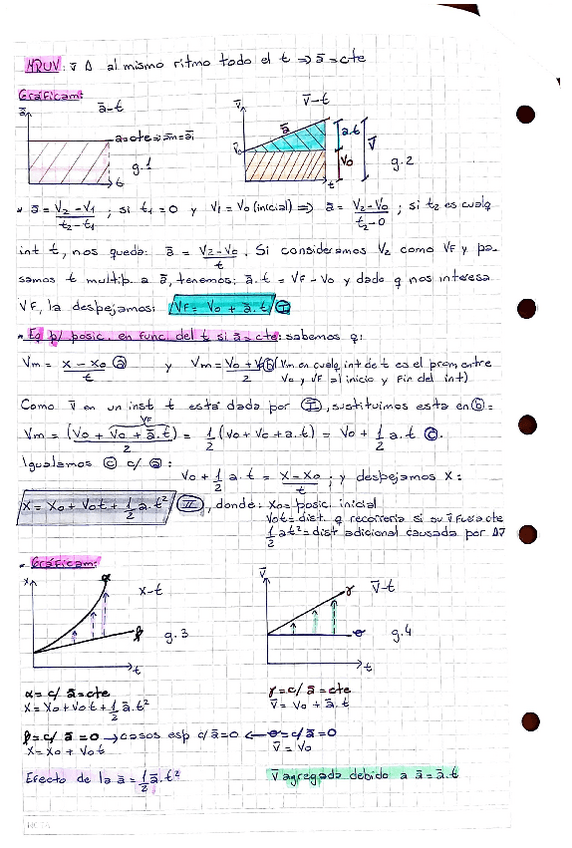 MRUV: v̄ Δ al mismo ritmo todo el t ⇒ ā = cte
Gráficam:
ā
ā-t
a=cte ⇒ am=ā
g.1
t
v̄
v̄-t
ā
a.t
V̄
V₀
V₀
g.2
t
* ā = V₂-V₁/t₂-t₁ ; si t₁=0 y V₁=V₀ (inicial) ⇒ ā = V₂-V₀/t₂-0 ; si t₂ es cualq
int t, nos queda: ā = V₂-V₀/t. Si consideramos V₂ como VF y pa-
samos t multip. a ā, tenemos: ā.t = VF-V₀ y dado q nos interesa
VF, la despejamos: VF = V₀ + ā.t I
* Eq p/ posic. en func. del t si ā=cte: sabemos q:
Vm = X-X₀/t ⓐ y Vm = V₀+VF/2 ⓑ (Vm en cualq int de t es el prom, entre
V₀ y VF al inicio y fin del int)
Como V̄ en un inst t está dada por I, sustituimos esta en ⓑ:
VF
Vm = (V₀ + V₀ + ā.t)/2 = 1/2 (V₀+V₀+a.t) = V₀ + 1/2 a.t ⓒ.
Igualamos ⓒ c/ ⓐ:
V₀ + 1/2 a.t = X-X₀/t ; y despejamos X:
X = X₀ + V₀t + 1/2 a.t² II, donde: X₀ = posic. inicial
V₀t = dist. q recorrería si su v̄ fuera cte
1/2 at² = dist adicional causada por ΔV̄
* Gráficam:
X
α
X-t
β
g.3
t
V̄
γ
V̄-t
θ
g.4
t
α = c/ ā=cte
X = X₀ + V₀t + 1/2 ā.t²
γ = c/ ā = cte
V̄ = V₀ + ā.t
β = c/ ā = 0 → casos esp c/ ā=0 ← θ = c/ ā = 0
X = X₀ + V₀t
V̄ = V₀
Efecto de la ā = 1/2 ā.t²
V̄ agregada debido a ā = ā.t
NOTA